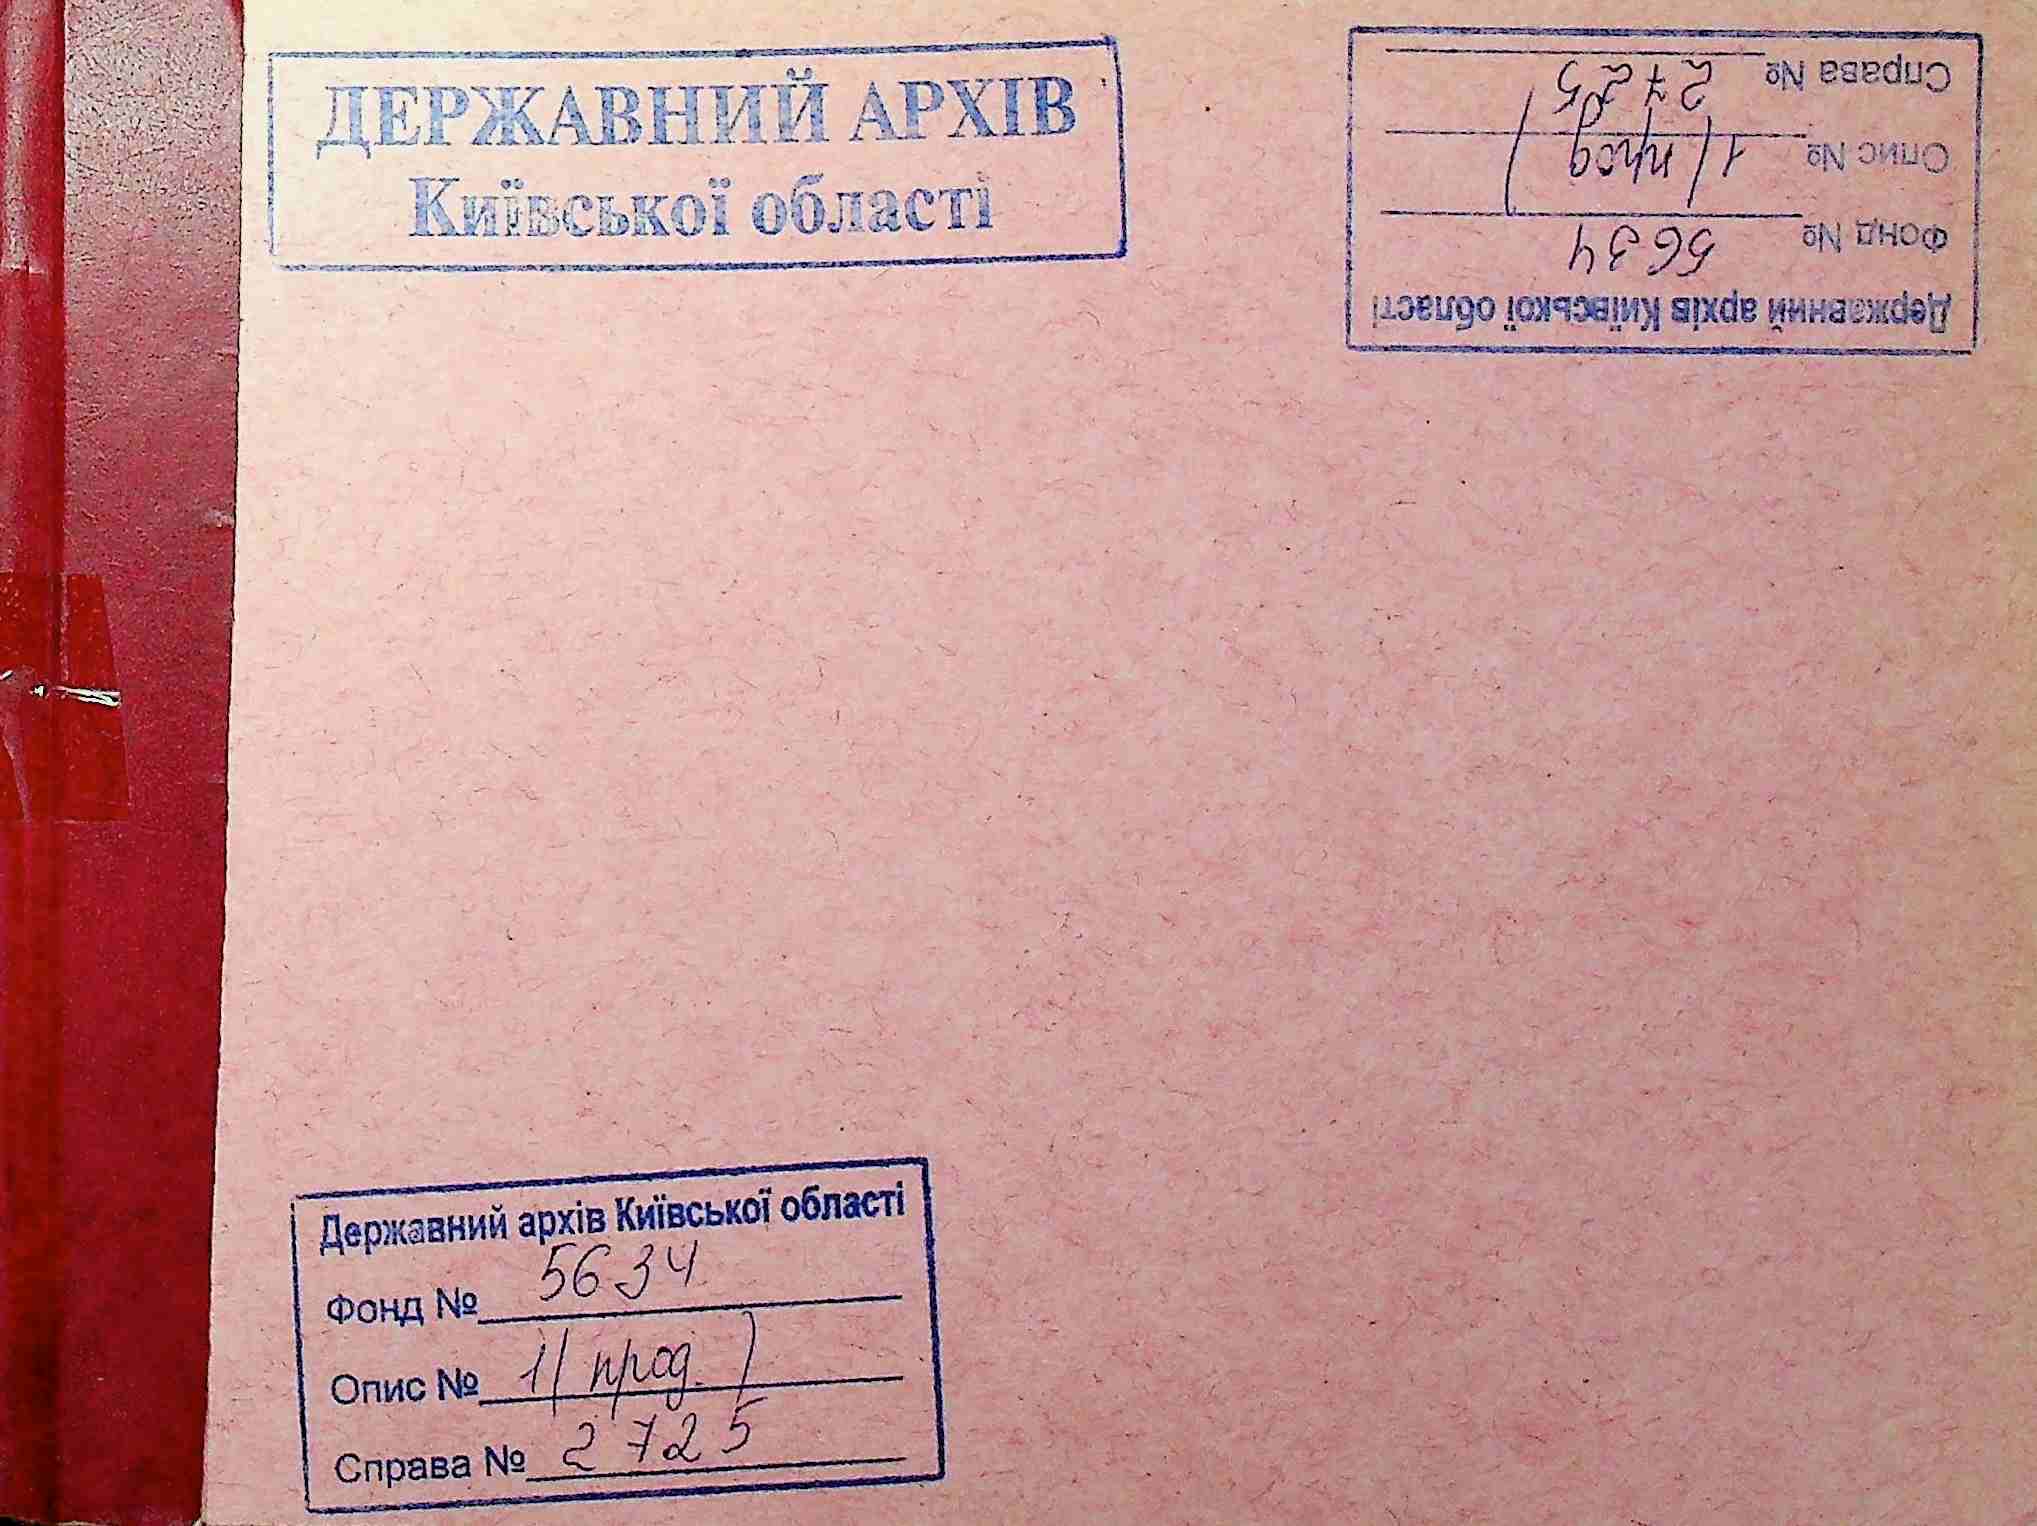 ДЕРЖАВНИЙ АРХІВ
Київської області
Державний архів Київської області
Фонд № 5634
Опис № 1(прод)
Справа № 2725
Державний архів Київської області
Фонд № 5634
Опис № 1(прод.)
Справа № 2725